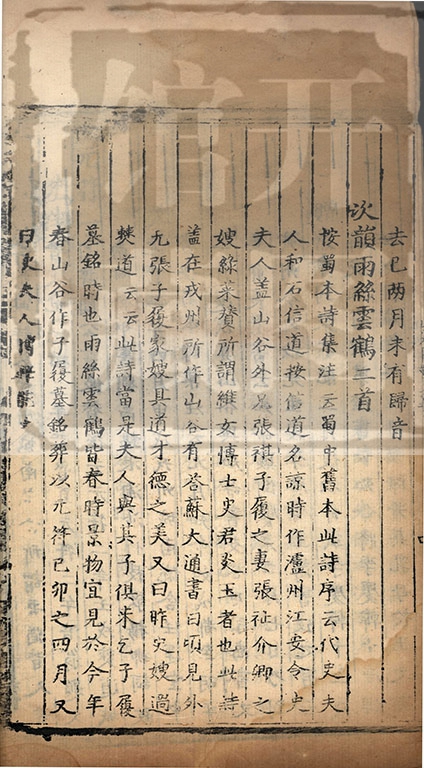 去已两月未有歸音
次韻雨絲雲鶴二首
按蜀本詩集注云蜀中舊本此詩序云代史夫
人和石信道按信道名諒時作瀘州江安令史
夫人蓋山谷外兄張祺子履之妻張祉介卿之
嫂綠菜賛所謂維女博士史君炎玉者也此詩
蓋在戎州所作山谷有荅蘇大通書曰頃見外
兄張子履家嫂具道才德之美又曰昨史嫂過
僰道云云此詩當是夫人與其子俱来乞子履
墓銘時也雨絲雲鶴皆春時景物宜見於今年
春山谷作子履墓銘葬以元符已卯之四月又
曰史夫人